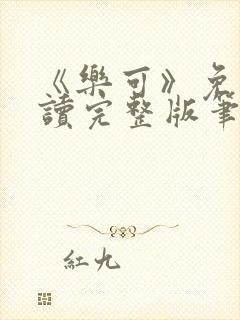 《樂可》免
讀完整版筆
紅九